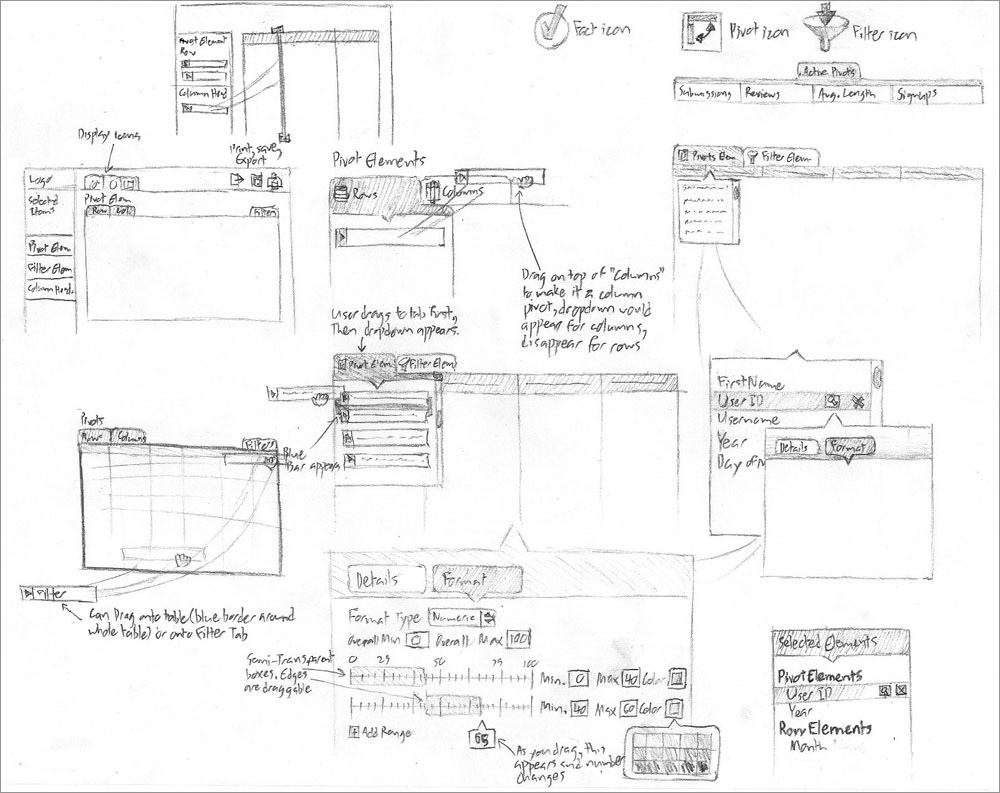 Pivot Element
Row
Column Head
Fact icon
Pivot icon
Filter icon
Active Pivots
Submissions
Reviews
Avg. Length
Signups
Display icons
Print, save,
Export
Logo
Selected
Items
Pivot Elem
Row
Col
Filter
Pivot Elem
Filter Elem
Column Head.
Pivot Elements
Rows
Columns
Drag on top of "Columns"
to make it a column
pivot, dropdown would
appear for columns,
disappear for rows
Pivots Elem
Filter Elem
User drags to tab first,
Then dropdown appears.
Pivot Elem
Filter Elem
Blue
Bar appears
Pivots
Rows
Columns
Filters
Filter
Can Drag onto table (blue border around
whole table) or onto Filter Tab
First Name
User ID
Username
Year
Day of
Details
Format
Details
Format
Format Type
Numeric
Overall Min
0
Overall Max
100
0
25
50
75
100
Semi-Transparent
boxes. Edges
are draggable
Min. 0 Max 40 Color
Min. 40 Max 60 Color
Add Range
65
As you drag, this
appears and number
changes
Selected Elements
Pivot Elements
User ID
Year
Row Elements
Month